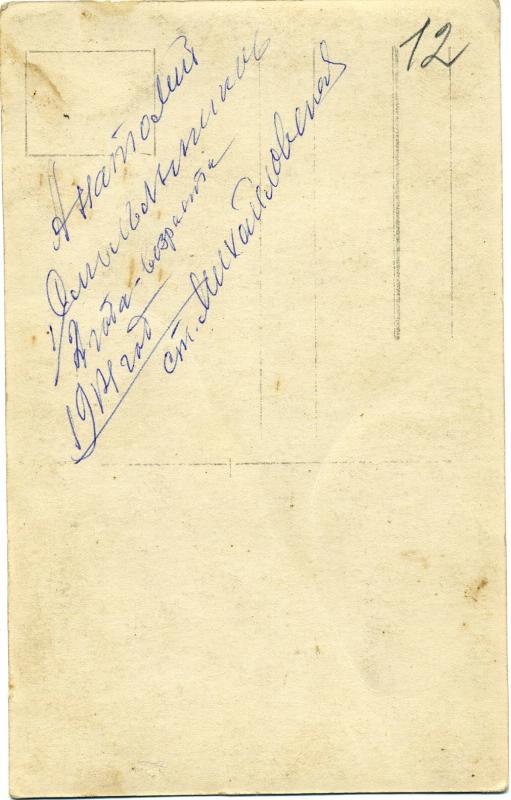 12
Анатолий
2 года - возраста
1914 год
ст. Михайловская